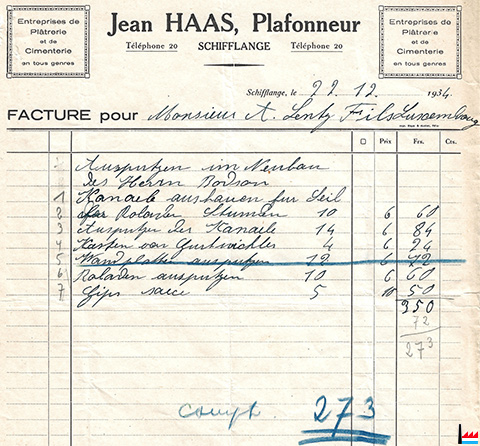 Entreprises de
Plâtrerie
et de
Cimenterie
en tous genres
Jean HAAS, Plafonneur
Téléphone 20 SCHIFFLANGE Téléphone 20
Entreprises de
Plâtrerie
et de
Cimenterie
en tous genres
Schifflange, le 22. 12. 1934.
FACTURE pour Monsieur A. Lentz Fils Luxembourg
□ Prix Frs. Cts.
Ausputzen im Neubau
des Herrn Bodson
1 Kanaele aushauen fur Seil
2 fur Roladen Stunden 10 6 60
3 Ausputzen des Kanaele 14 6 84
4 Kasten von Gurtwickler 4 6 24
5 Wandplatten ausputzen 12 6 72
6 Roladen ausputzen 10 6 60
7 Gips sacce 5 10 50
350
72
273
273